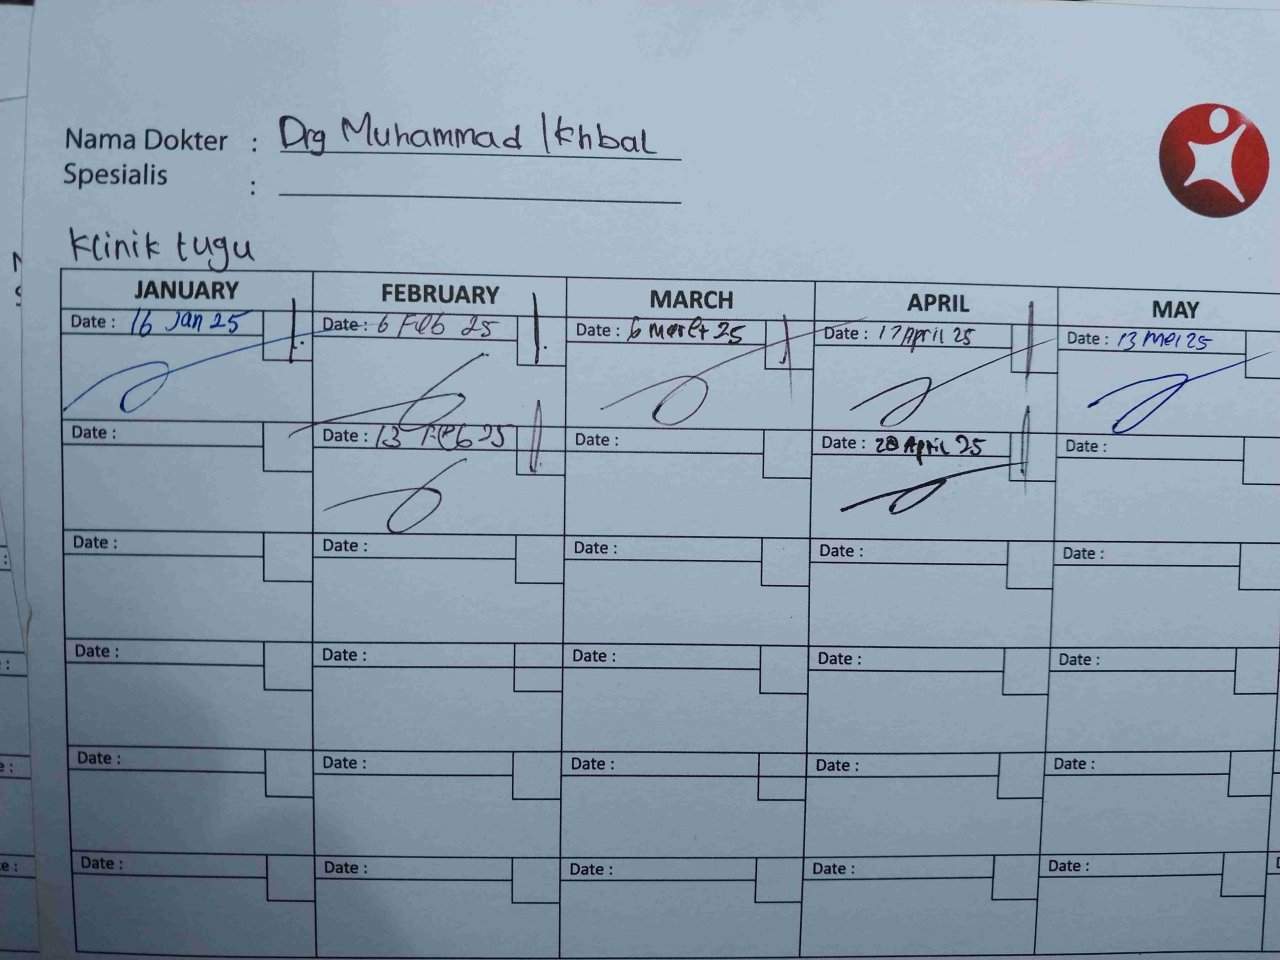 Nama Dokter : Drg Muhammad Ikhbal
Spesialis :
Klinik tugu
JANUARY FEBRUARY MARCH APRIL MAY
Date : 16 Jan 25 Date : 6 Feb 25 Date : 6 Maret 25 Date : 17 April 25 Date : 13 Mei 25
Date : Date : 13 Feb 25 Date : Date : 28 April 25 Date :
Date : Date : Date : Date : Date :
Date : Date : Date : Date : Date :
Date : Date : Date : Date : Date :
Date : Date : Date : Date : Date :